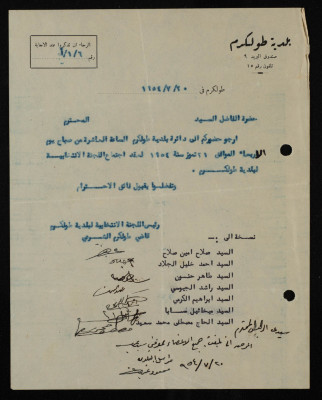 بلدية طولكرم
صندوق البريد ٩
تلفون رقم ١٥
الرجاء ان تذكروا عند الاجابة
رقم ٦/٦/٩
طولكرم في ١٩٥٤/٧/٢٠
حضرة الفاضل السيد المحترم
ارجو حضوركم الى دائرة بلدية طولكرم الساعة العاشرة من صباح يوم
الاربعاء الموافق ٢١ تموز سنة ١٩٥٤ لعقد اجتماع اللجنة الانتخابية
لبلدية طولكرم
وتفضلوا بقبول فائق الاحترام
رئيس اللجنة الانتخابية لبلدية طولكرم
قاضي طولكرم الشرعي
نسخة الى :-
السيد صلاح امين صلاح
السيد احمد خليل الجلاد
السيد طاهر حنون
السيد راشد الجيوسي
السيد ابراهيم الكرمي
السيد ميخائيل
السيد الحاج مصطفى محمد سعيد
سيدي الرئيس المحترم
جميع الاعضاء
٩٥٤/٧/٢٠